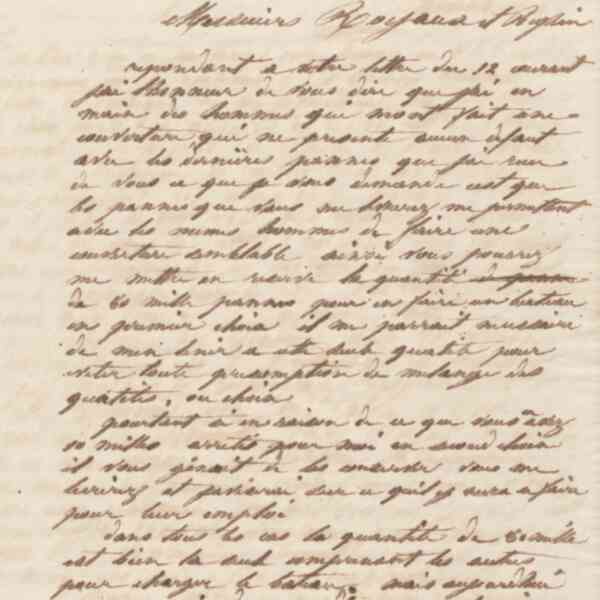 Messieurs Royaux et Beglin
repondant a votre lettre du 12 courant
jai lhonneur de vous dire que jai en
main des hommes qui mont fait une
couverture qui ne presente aucun defaut
avec les dernières pannes que jai reçu
de vous ce que je vous demande est que
les pannes que vous me livrerez me permettent
avec les memes hommes de faire une
couverture semblable ainsi vous pourrez
me mettre en reserve la quantité
de 80 mille pannes pour en faire un bateau
en premier choix il me parrait nessaire
de men tenir a cette seule quantité pour
eviter toute presomption de melange des
qualités, ou choix
pourtant si en raison de ce que vous avez
10 milles arretés pour moi en second choix
il vous génait de les conserver vous me
lecrirez et javiserai sur ce quil y aura a faire
pour leur emploi
dans tous les cas la quantité de 80 mille
est bien la seule comprenant les autres
pour charger le bateau, mais aujourdhui